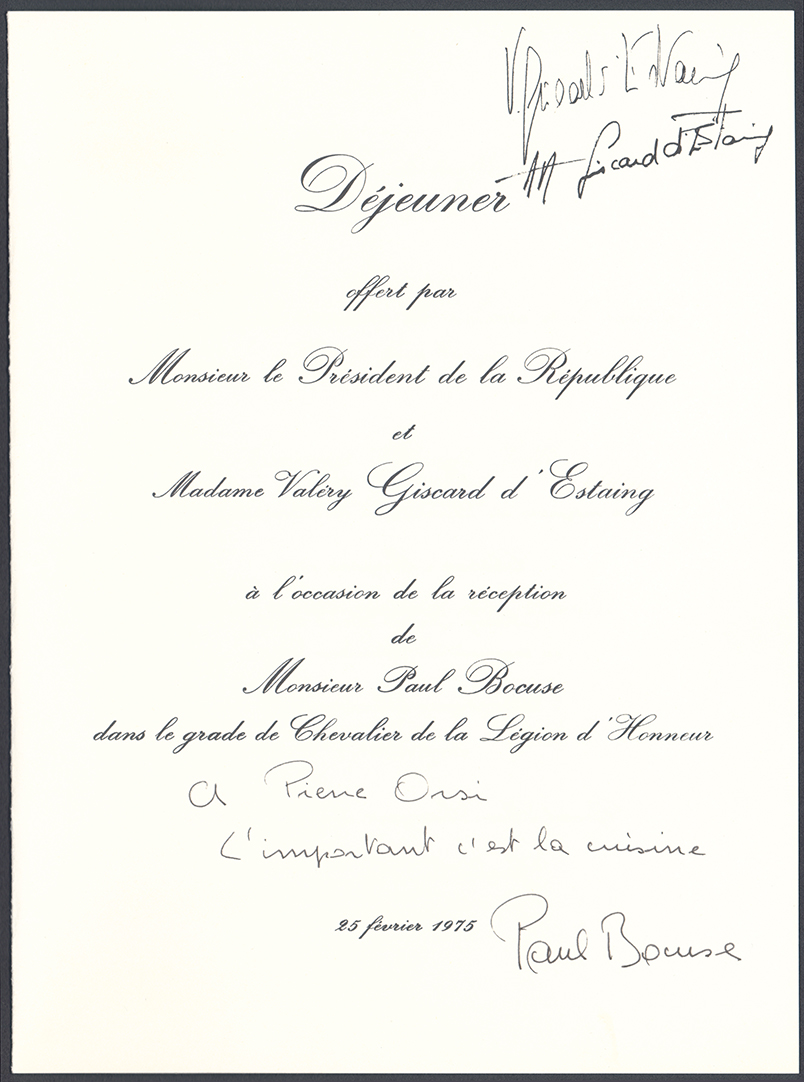 V. Giscard d'Estaing
AA Giscard d'Estaing
Déjeuner
offert par
Monsieur le Président de la République
et
Madame Valéry Giscard d'Estaing
à l'occasion de la réception
de
Monsieur Paul Bocuse
dans le grade de Chevalier de la Légion d'Honneur
A Pierre Orsi
L'important c'est la cuisine
25 février 1975
Paul Bocuse